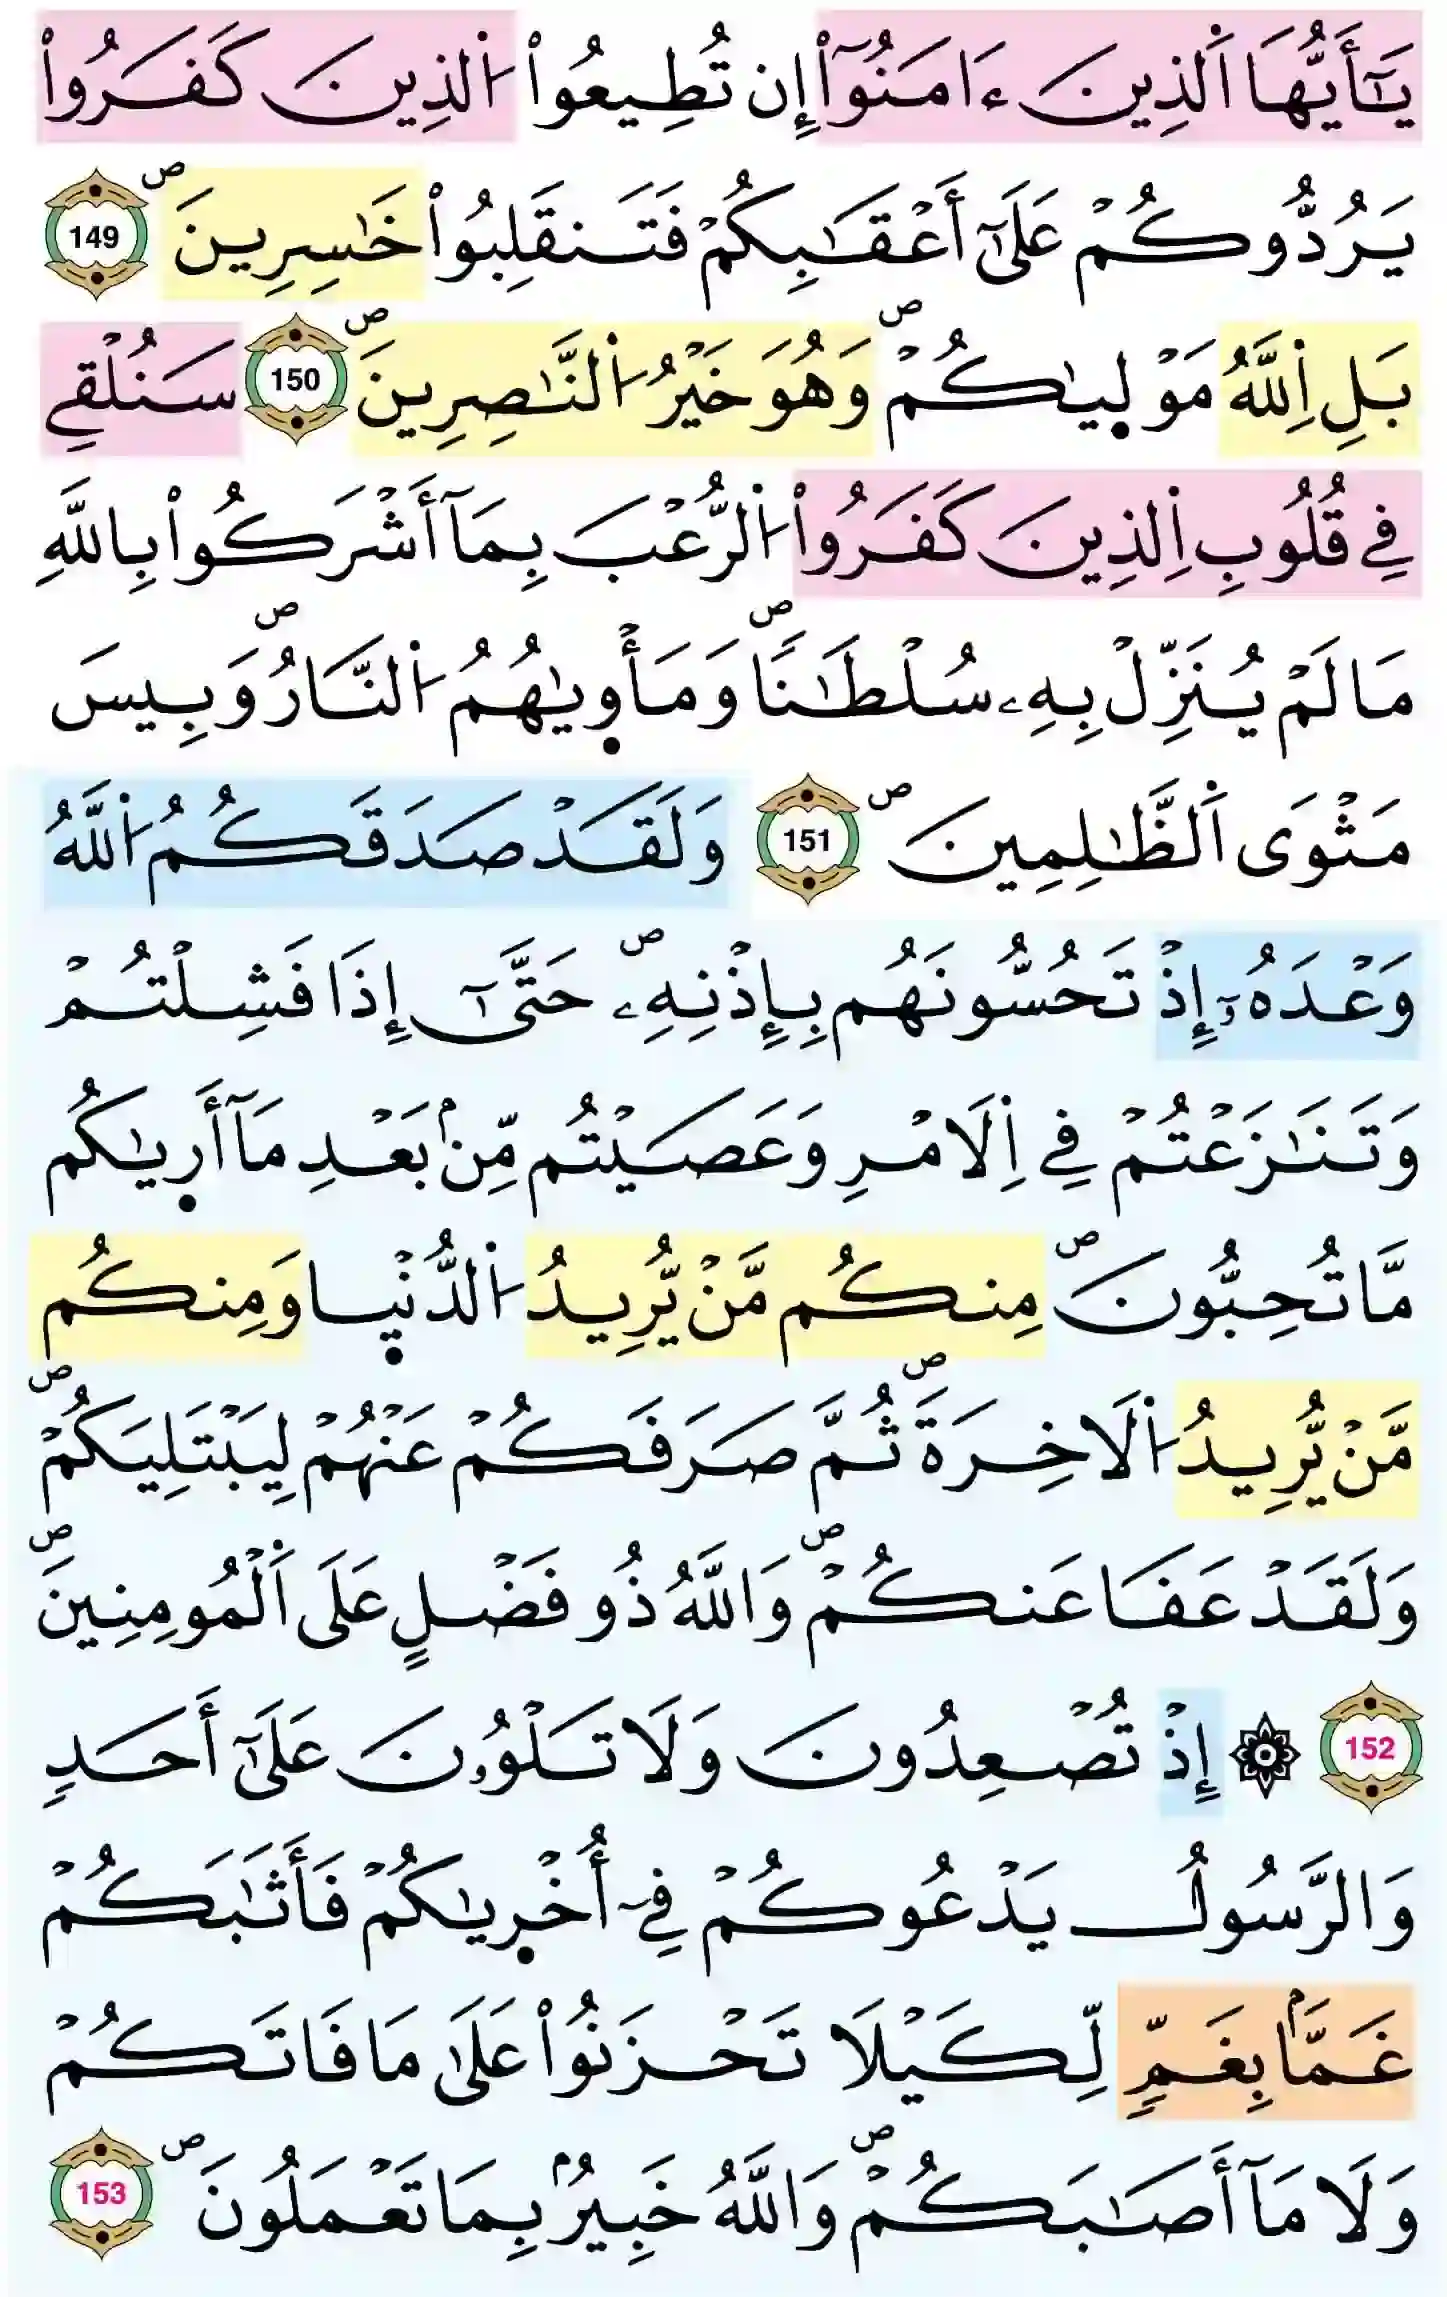 يَٰٓأَيُّهَا اَ۬لذِينَ ءَامَنُوٓاْ إِن تُطِيعُواْ اُ۬لذِينَ كَفَرُواْ
يَرُدُّوكُمْ عَلَىٰٓ أَعْقَٰبِكُمْ فَتَنقَلِبُواْ خَٰسِرِينَۖ 149
بَلِ اِ۬للَّهُ مَوْل۪يٰكُمْۖ وَهُوَ خَيْرُ اُ۬لنَّٰصِرِينَۖ 150 سَنُلْقِے
فِے قُلُوبِ اِ۬لذِينَ كَفَرُواْ اُ۬لرُّعْبَ بِمَآ أَشْرَكُواْ بِاللَّهِ
مَا لَمْ يُنَزِّلْ بِهِۦ سُلْطَٰناٗۖ وَمَأْو۪يٰهُمُ اُ۬لنَّارُۖ وَبِيسَ
مَثْوَى اَ۬لظَّٰلِمِينَۖ 151 وَلَقَدْ صَدَقَكُمُ اُ۬للَّهُ
وَعْدَهُۥٓ إِذْ تَحُسُّونَهُم بِإِذْنِهِۦۖ حَتَّىٰٓ إِذَا فَشِلْتُمْ
وَتَنَٰزَعْتُمْ فِے اِ۬لَامْرِ وَعَصَيْتُم مِّنۢ بَعْدِ مَآ أَر۪يٰكُم
مَّا تُحِبُّونَۖ مِنكُم مَّنْ يُّرِيدُ اُ۬لدُّنْي۪ا وَمِنكُم
مَّنْ يُّرِيدُ اُ۬لَاخِرَةَۖ ثُمَّ صَرَفَكُمْ عَنْهُمْ لِيَبْتَلِيَكُمْۖ
وَلَقَدْ عَفَا عَنكُمْۖ وَاللَّهُ ذُو فَضْلٍ عَلَى اَ۬لْمُومِنِينَۖ
152 ۞ إِذْ تُصْعِدُونَ وَلَا تَلْوُۥنَ عَلَىٰٓ أَحَدٖ
وَالرَّسُولُ يَدْعُوكُمْ فِےٓ أُخْر۪يٰكُمْ فَأَثَٰبَكُمْ
غَمَّاۢ بِغَمّٖ لِّكَيْلَا تَحْزَنُواْ عَلَىٰ مَا فَاتَكُمْ
وَلَا مَآ أَصَٰبَكُمْۖ وَاللَّهُ خَبِيرُۢ بِمَا تَعْمَلُونَۖ 153